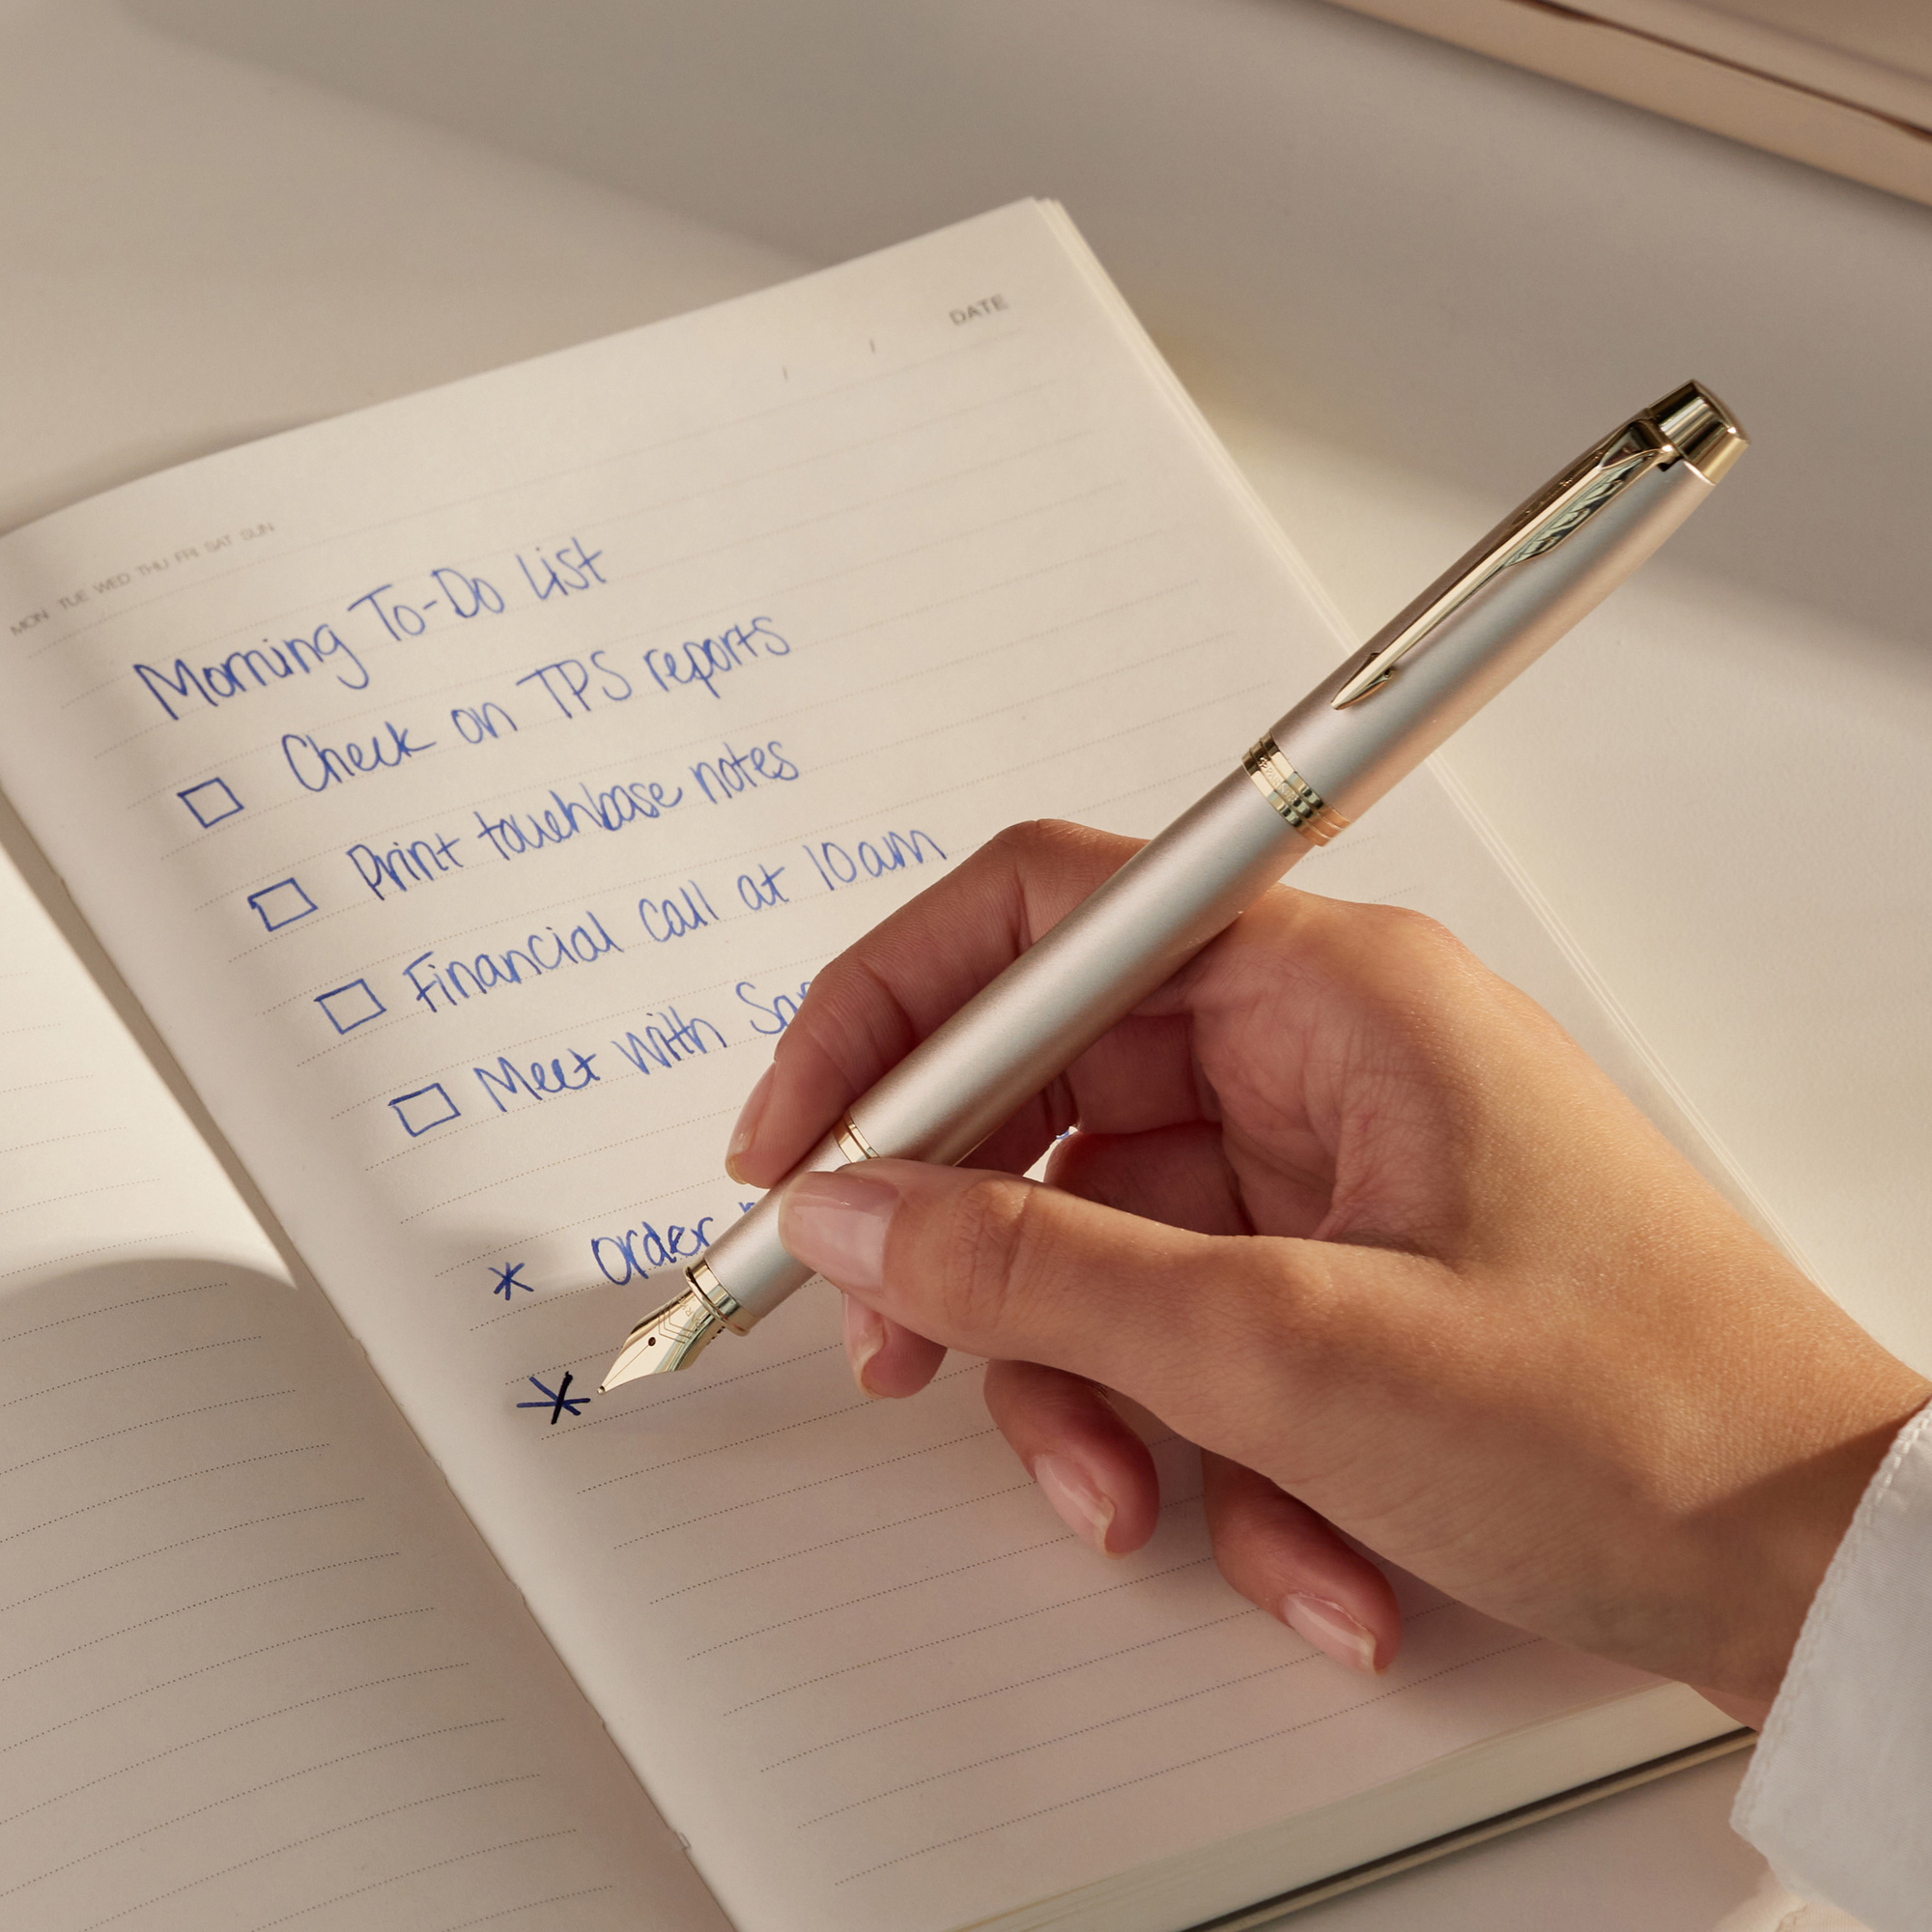 DATE
MON TUE WED THU FRI SAT SUN
Morning To-Do List
Check on TPS reports
Print touchbase notes
Financial call at 10am
Meet with
* Order
*